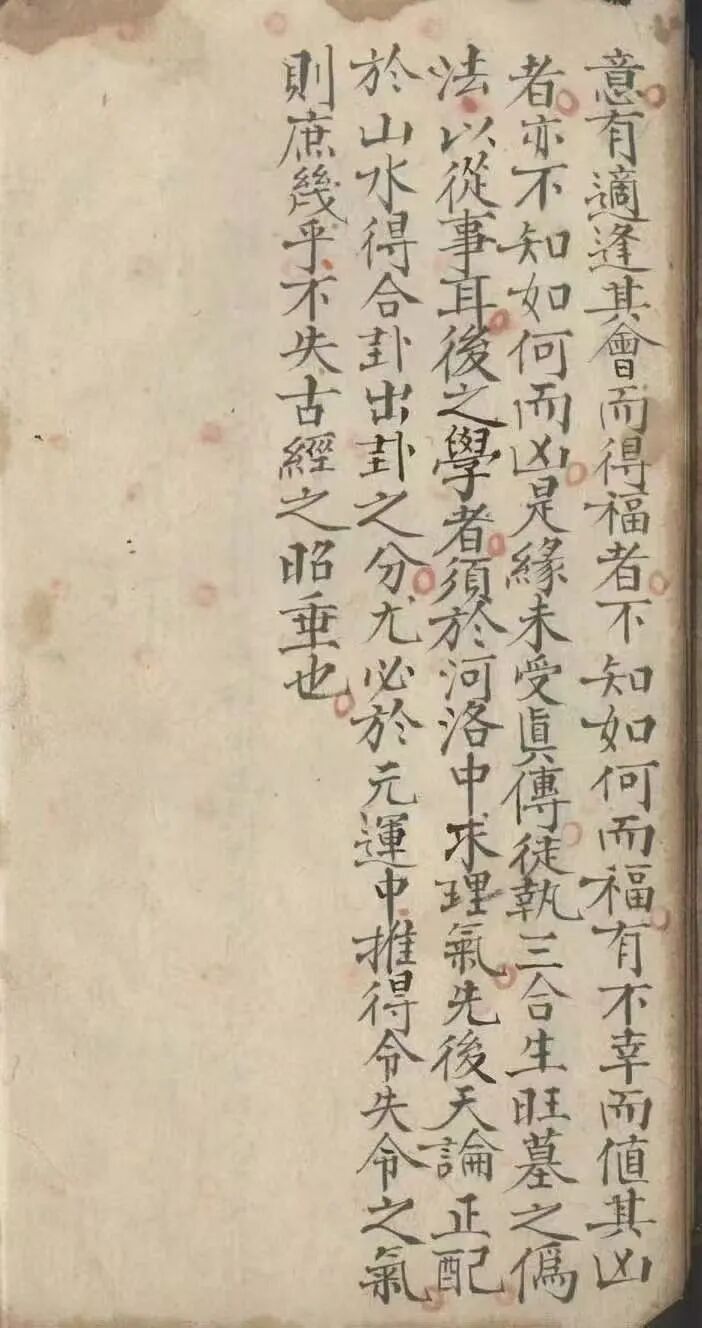 意有適逢其會而得福者不知如何而福有不幸而值其凶
者亦不知如何而凶是緣未受眞傳徒執三合生旺墓之僞
法以從事耳後之學者須於河洛中求理氣先後天論正配
於山水得合卦出卦之分尤必於元運中推得令失令之氣
則庶幾乎不失古經之昭垂也